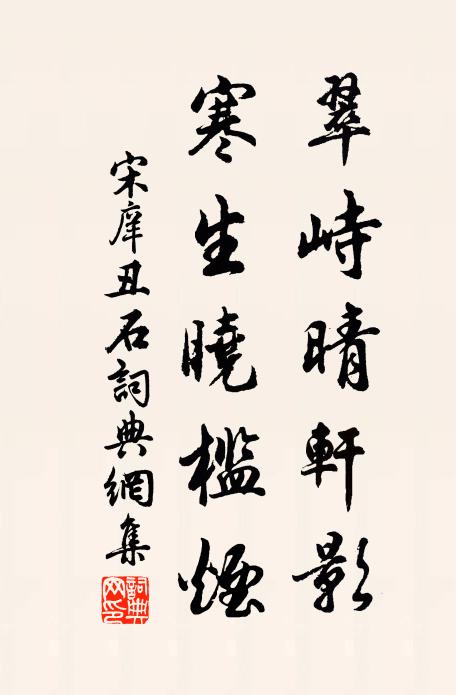 翠峙晴軒影
寒生曉檻煙
宋庠丑石詞典網集
詞典網印